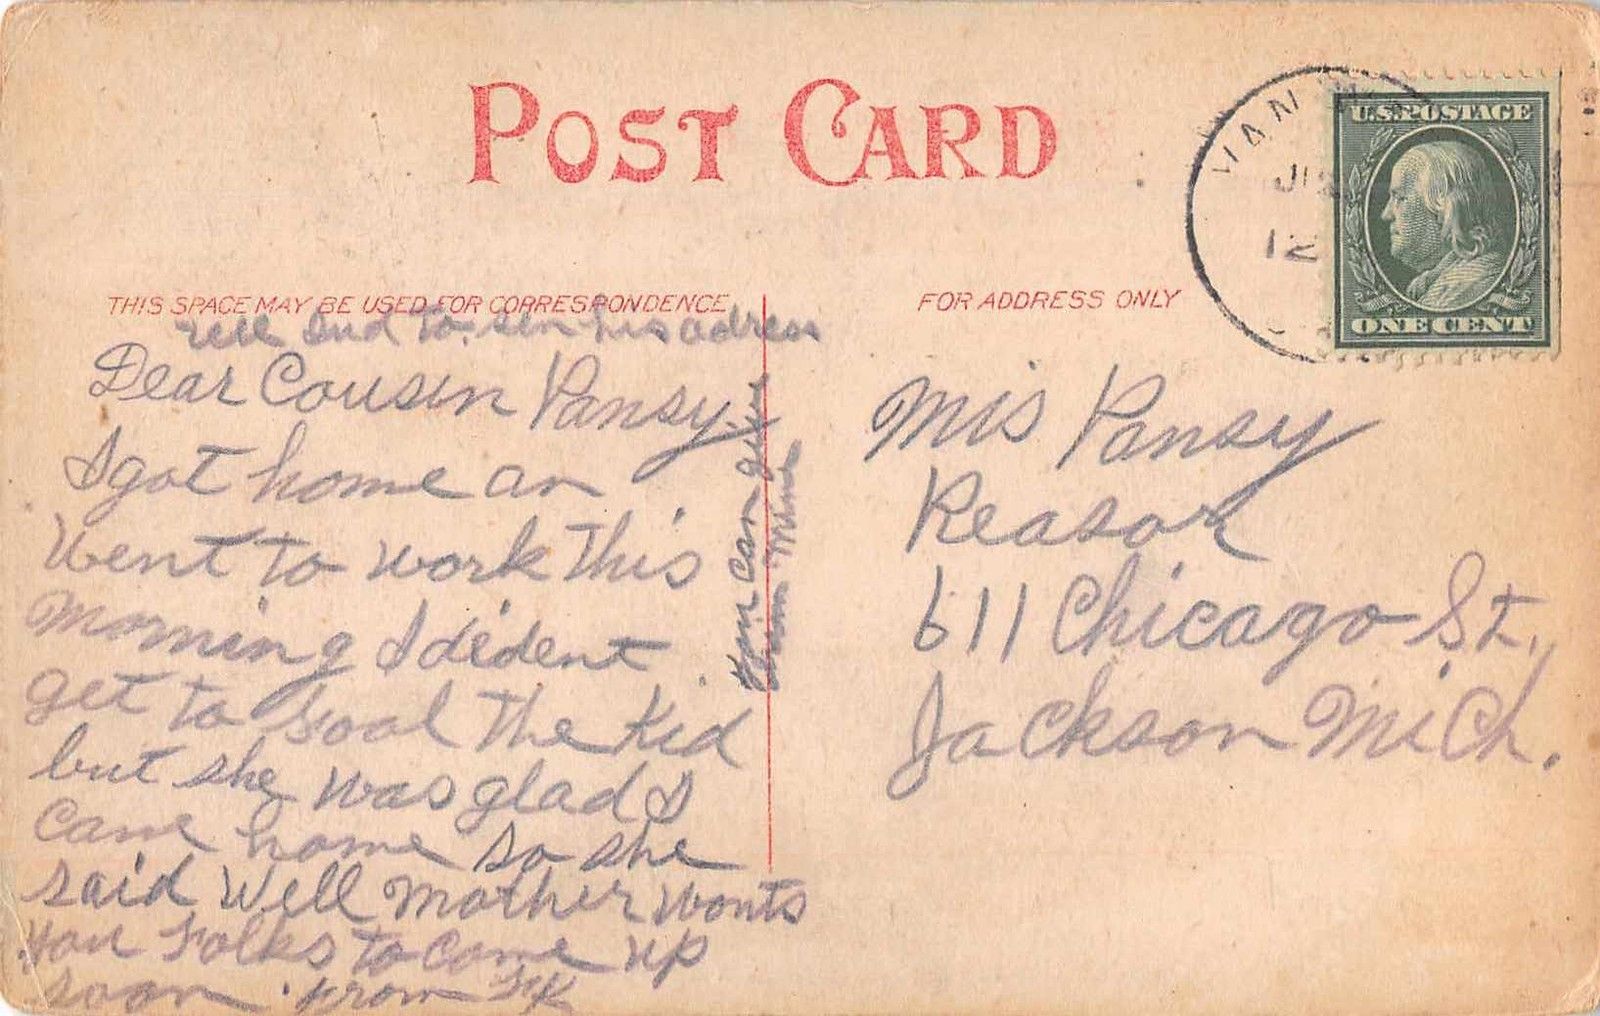 POST CARD
THIS SPACE MAY BE USED FOR CORRESPONDENCE
FOR ADDRESS ONLY
U.S. POSTAGE
ONE CENT
12
tell Bud to sen his adress
Dear Cousin Pansy.
I got home an
Went to work this
Morning I dident
get to Fool the Kid
but she was glad I
came home so she
said Well Mother wonts
You Folks to come up
soon. From FK
You can give
him Mine
Mis Pansy
Reasor
611 Chicago St.,
Jackson Mich.